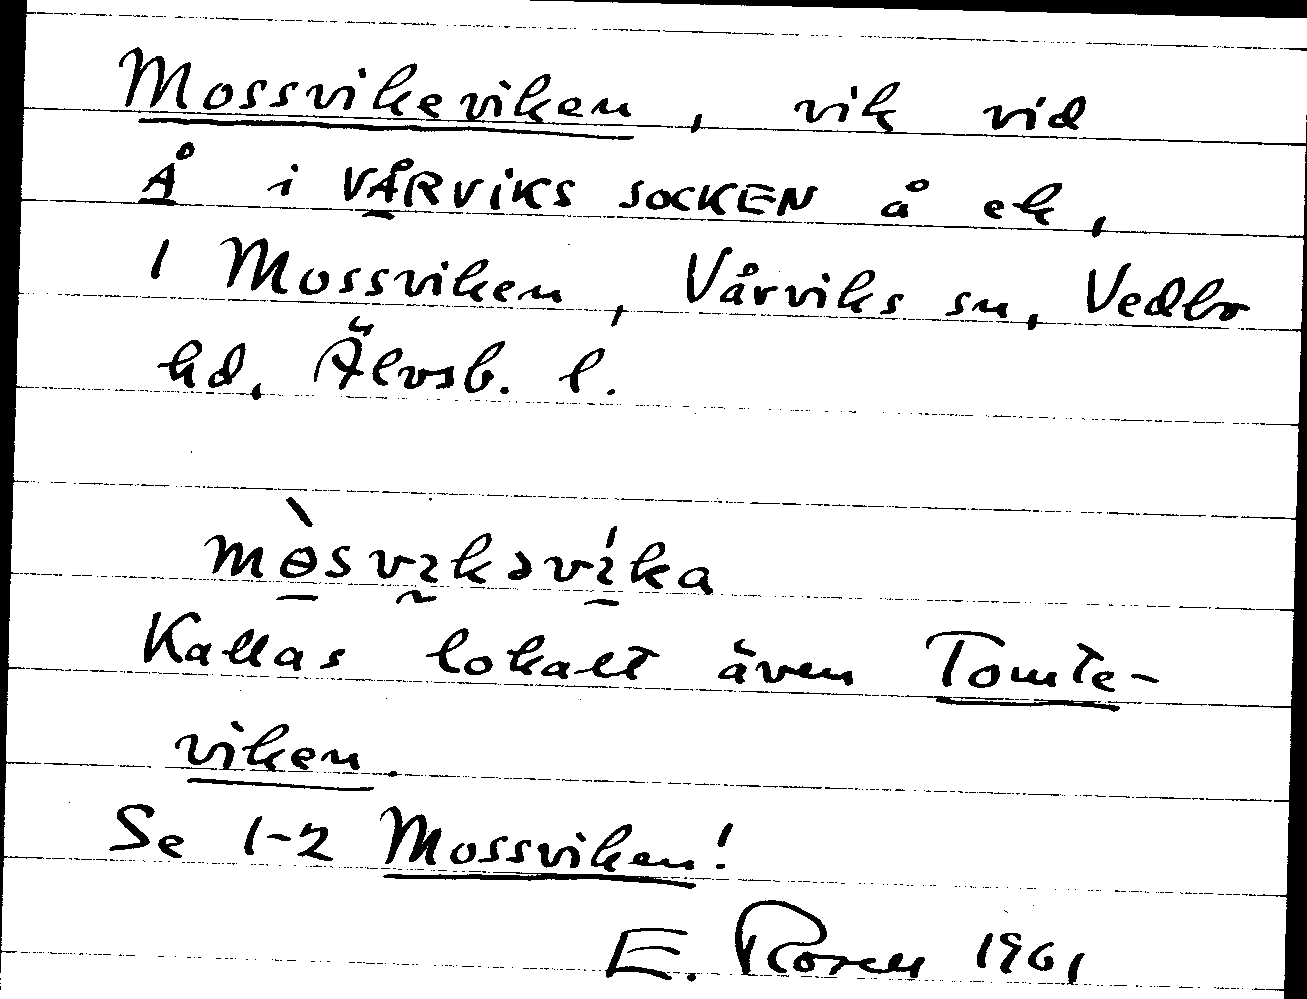 Mossvikeviken, vik vid
Å i VÅRVIKS SOCKEN å ek,
1 Mossviken, Vårviks sn, Vedbo
hd, Älvsb. l.
mòsvıkəvíka
Kallas lokalt även Tomte-
viken.
Se 1-2 Mossviken!
E. Rosell 1961